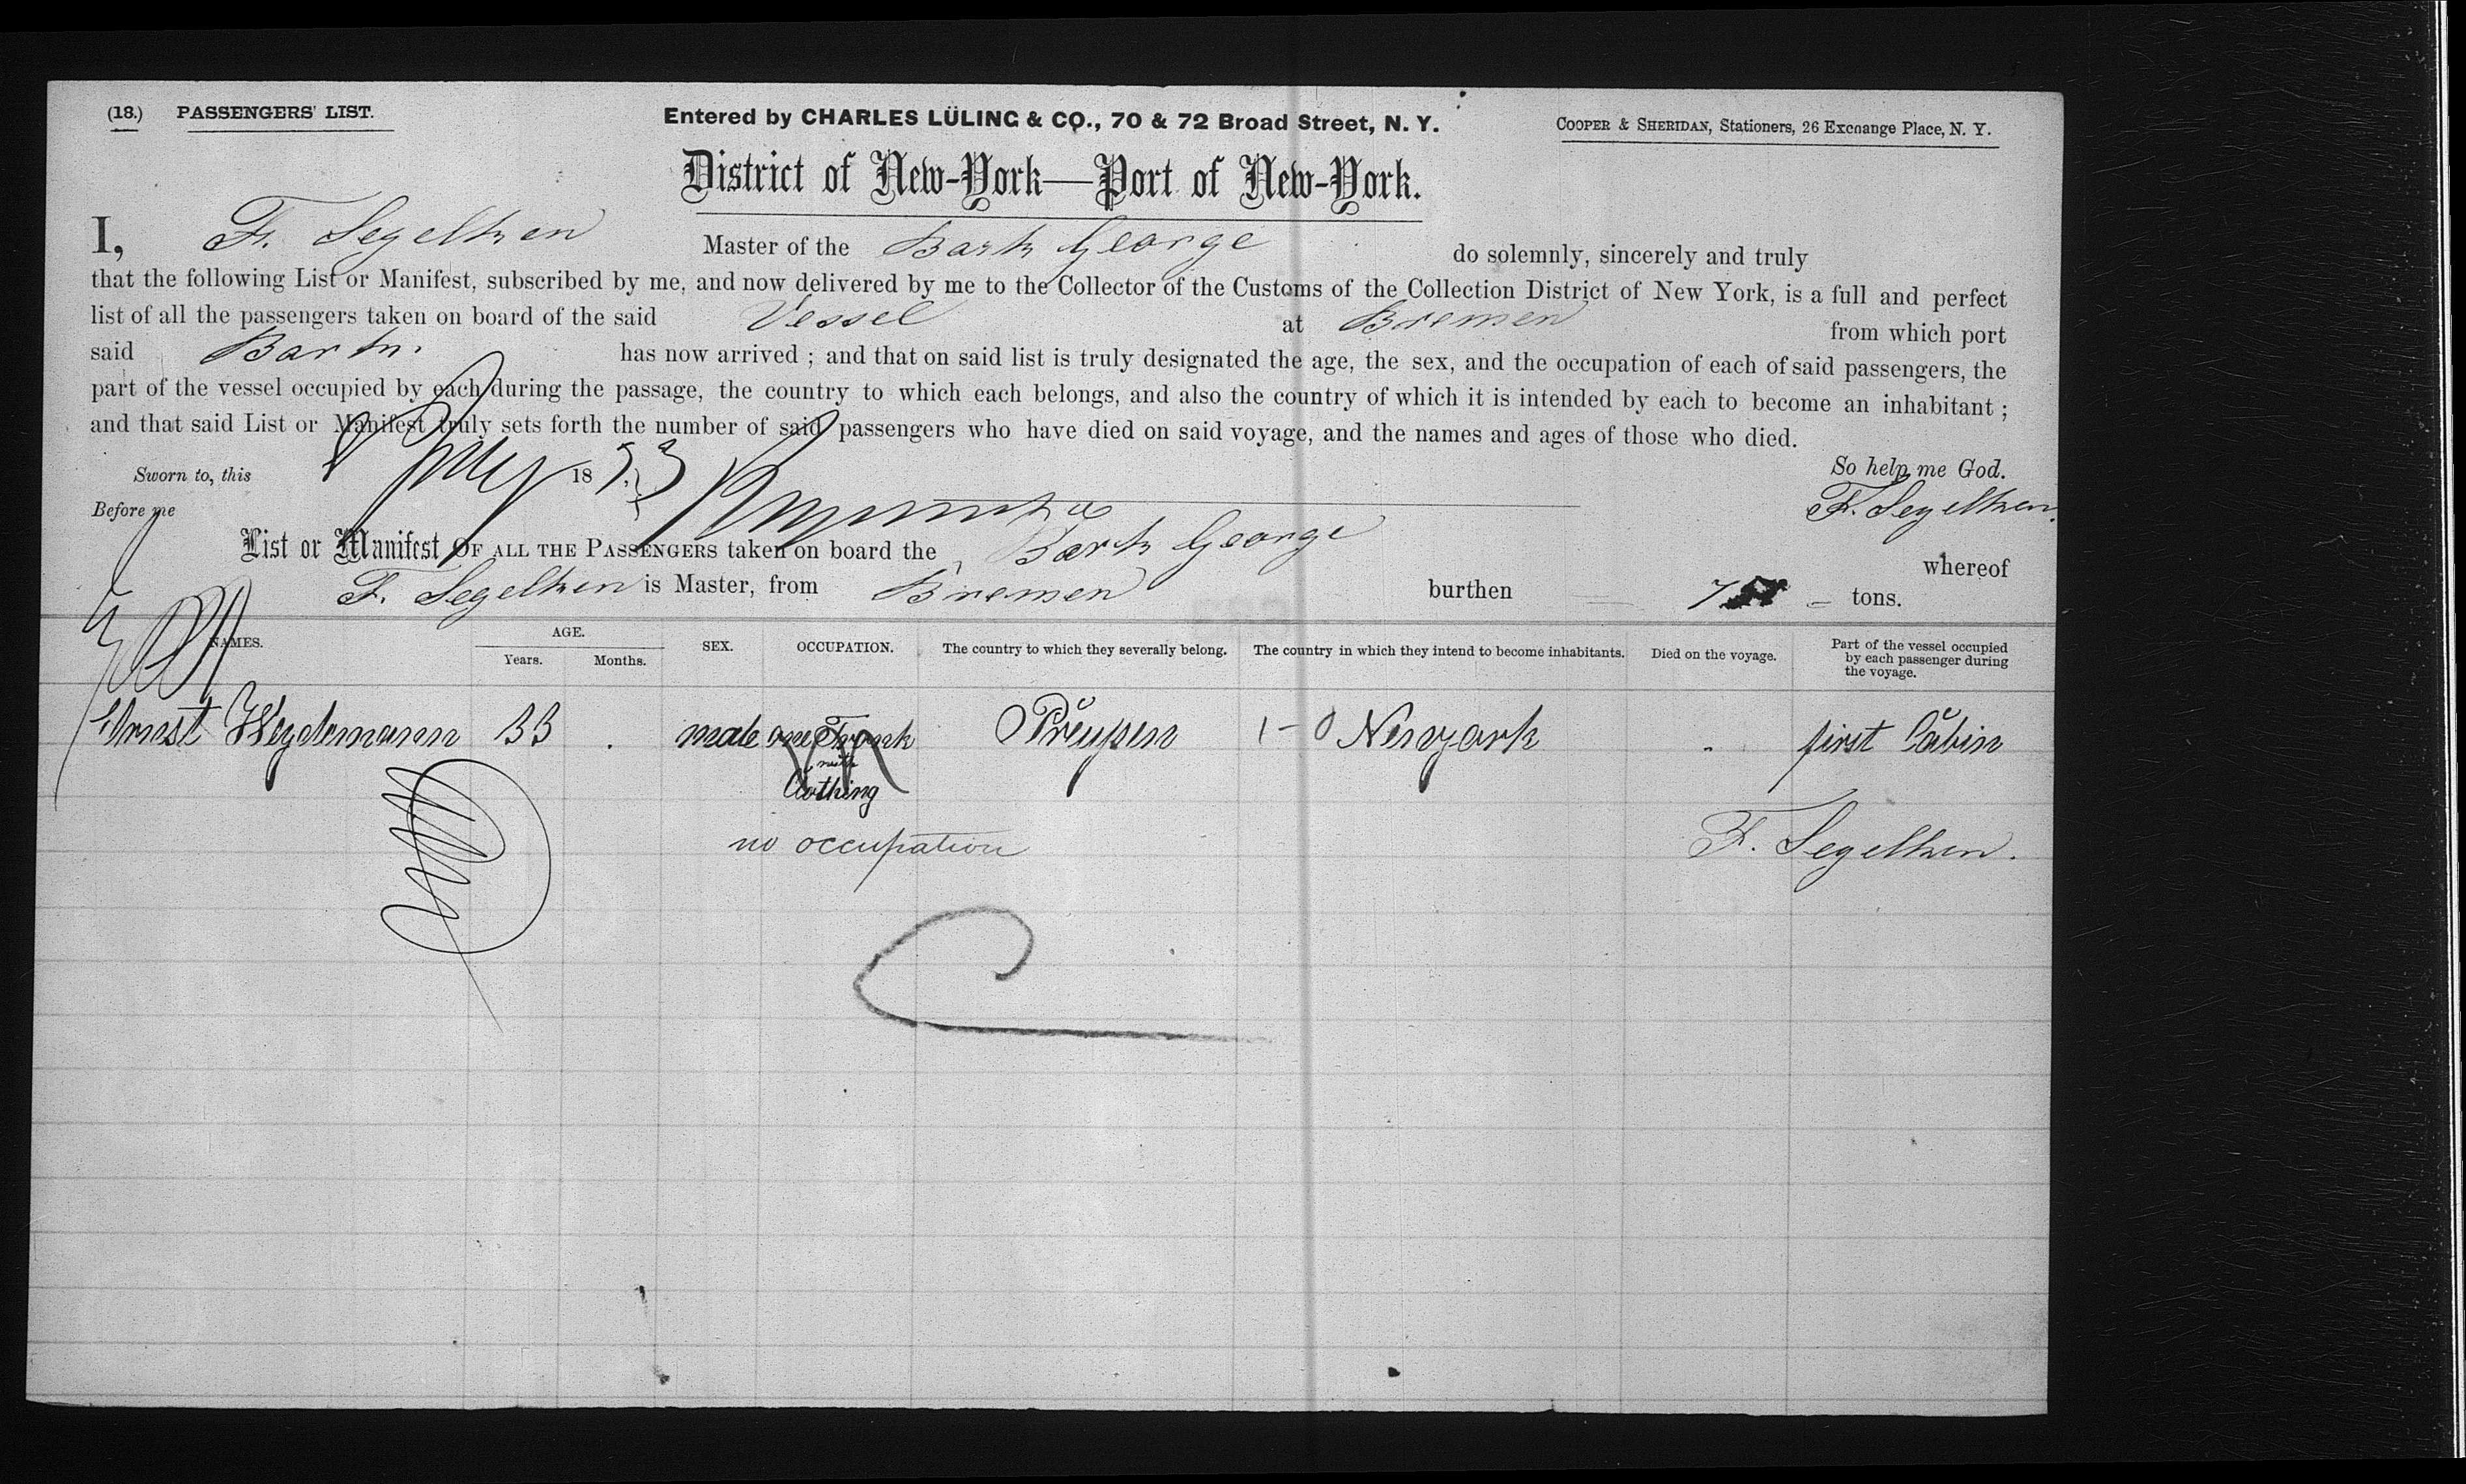 (18.) PASSENGERS' LIST.
Entered by CHARLES LÜLING & CO., 70 & 72 Broad Street, N. Y.
COOPER & SHERIDAN, Stationers, 26 Exchange Place, N. Y.
District of New-York—Port of New-York.
I, F. Segelken Master of the Bark George do solemnly, sincerely and truly
that the following List or Manifest, subscribed by me, and now delivered by me to the Collector of the Customs of the Collection District of New York, is a full and perfect
list of all the passengers taken on board of the said Vessel at Bremen from which port
said Bark. has now arrived ; and that on said list is truly designated the age, the sex, and the occupation of each of said passengers, the
part of the vessel occupied by each during the passage, the country to which each belongs, and also the country of which it is intended by each to become an inhabitant ;
and that said List or Manifest truly sets forth the number of said passengers who have died on said voyage, and the names and ages of those who died.
Sworn to, this 18 So help me God.
Before me F. Segelken.
List or Manifest OF ALL THE PASSENGERS taken on board the Bark George whereof
F. Segelken is Master, from Bremen burthen tons.
NAMES. AGE. Years. Months. SEX. OCCUPATION. The country to which they severally belong. The country in which they intend to become inhabitants. Died on the voyage. Part of the vessel occupied by each passenger during the voyage.
Ernest Wegdemann 33 . male one Tronk Preußen 1-0 Newyork - first Cabin
with
Clothing
no occupation F. Segelken.